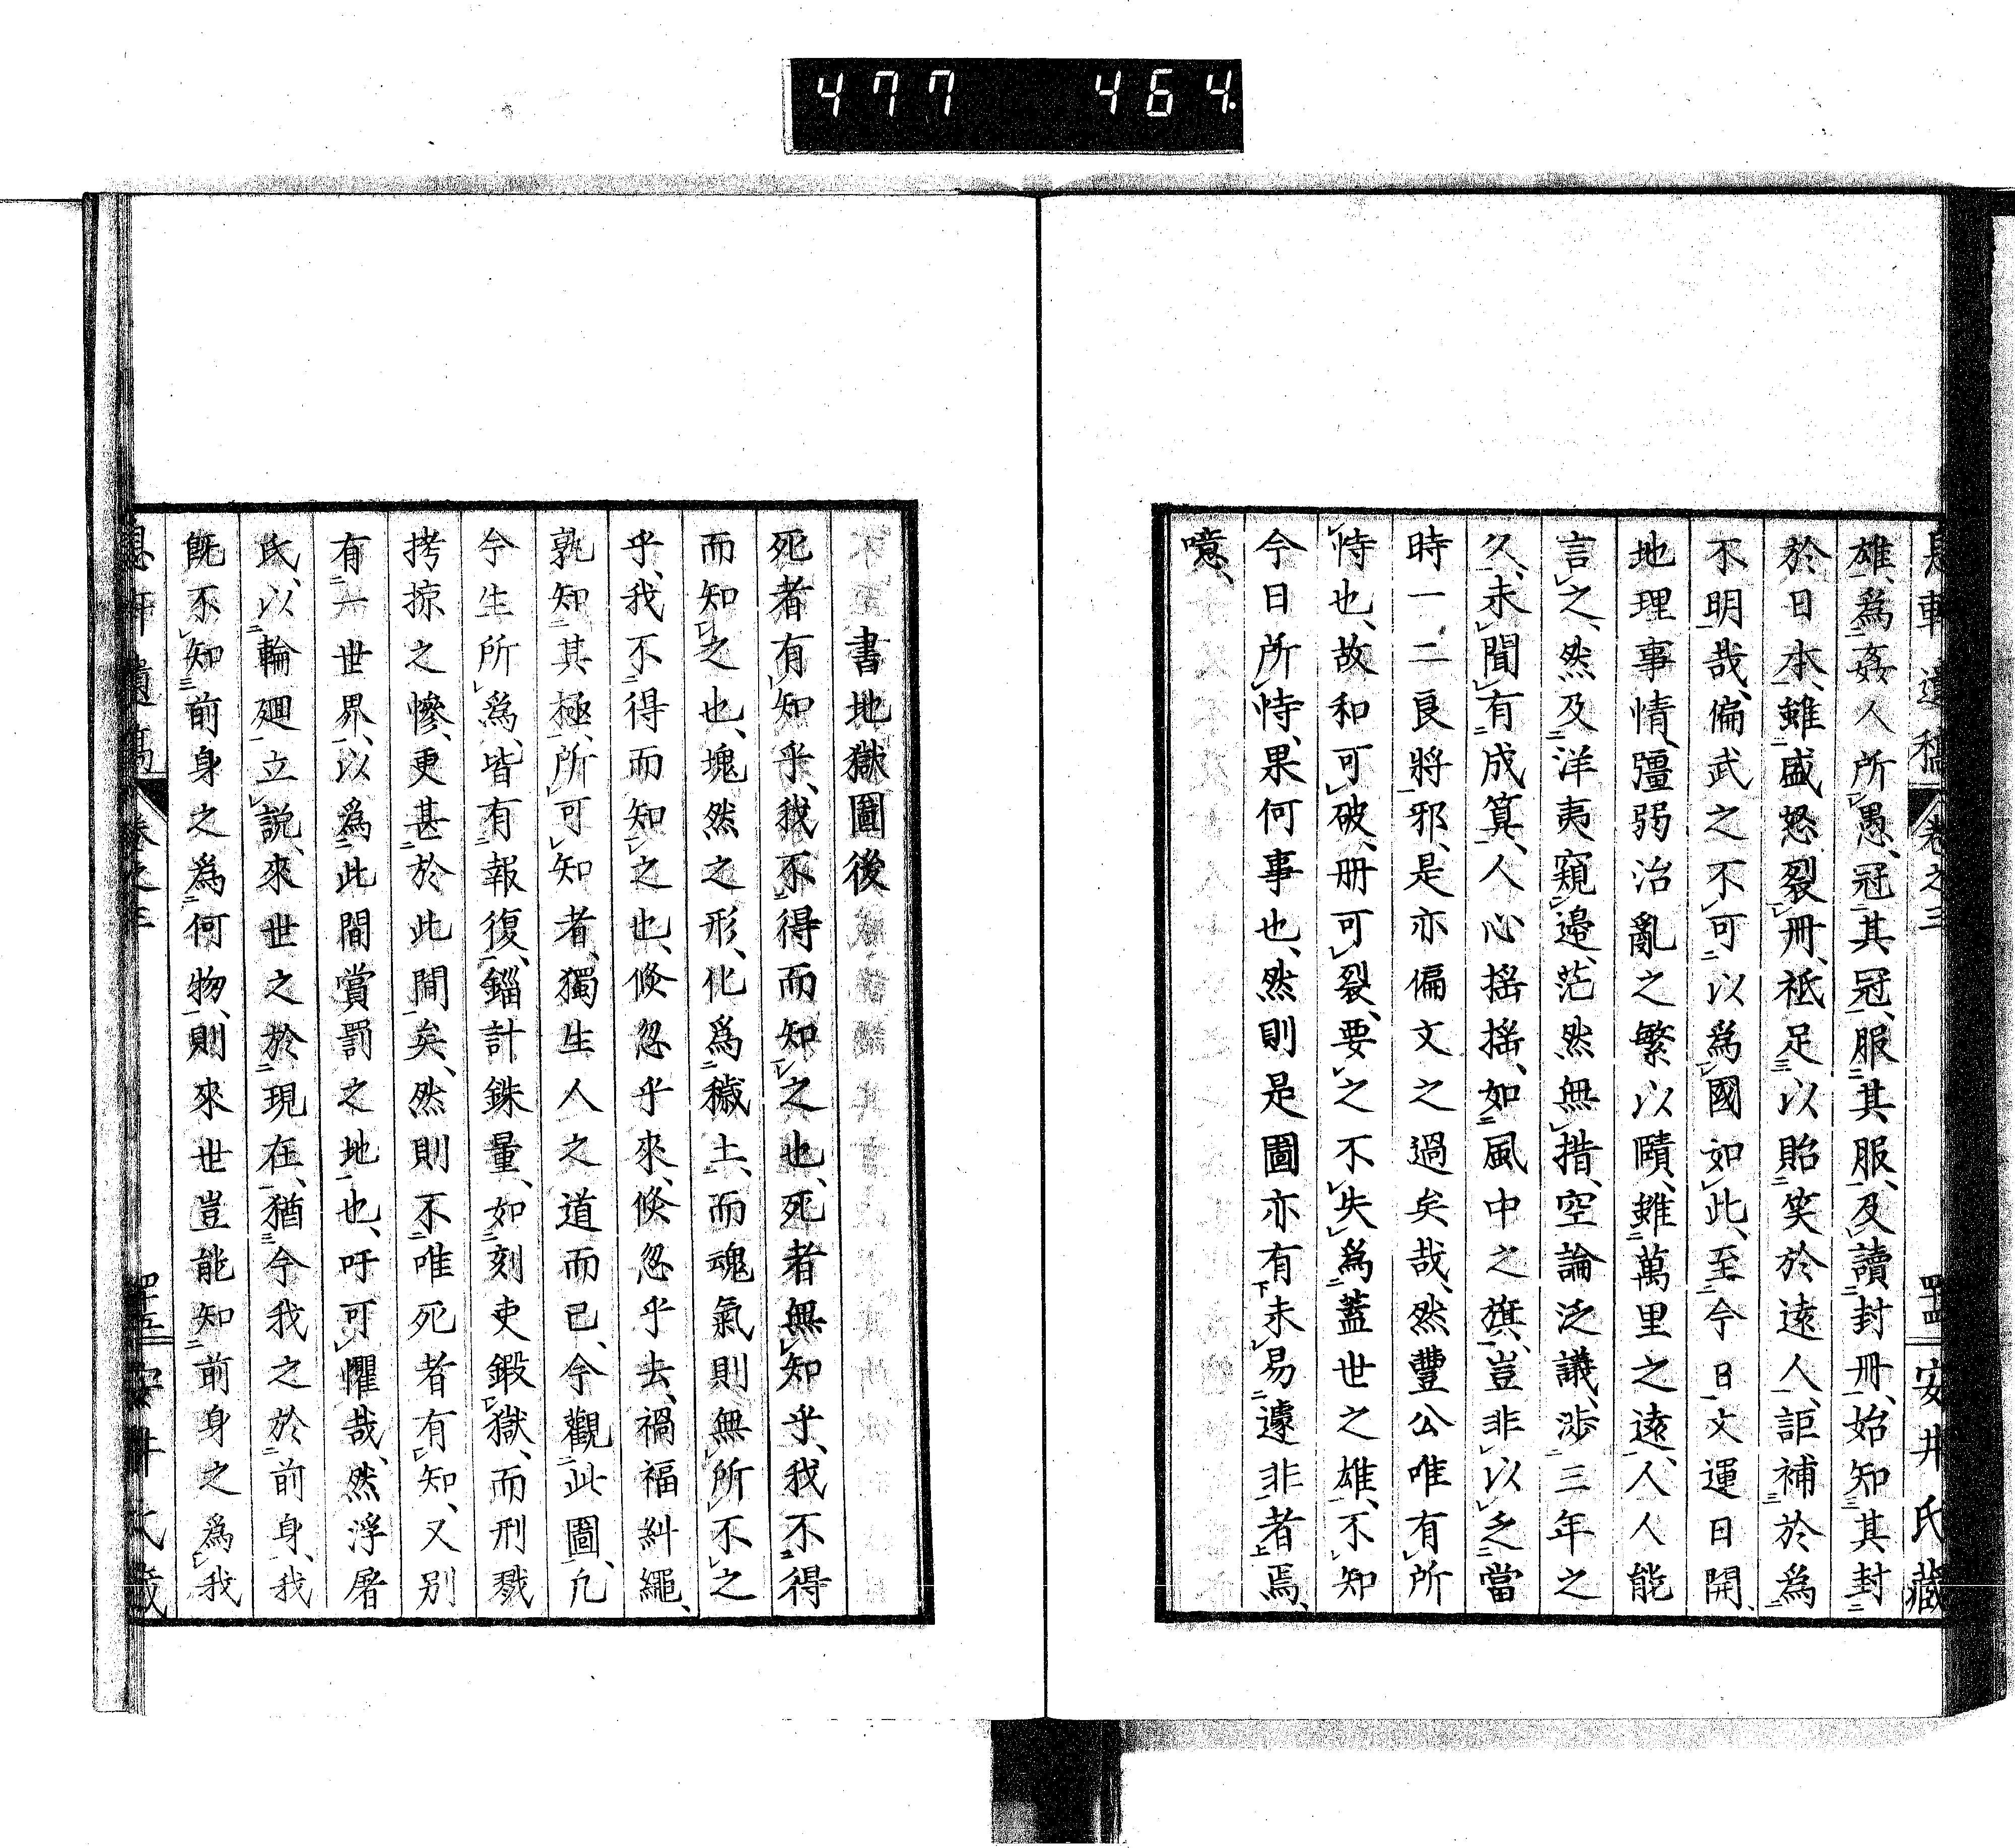 477 464
息軒遺稿 卷之三 四十四 安井氏藏
雄、爲姦人所愚、冠其冠、服其服、及讀封册、始知其封
於日本、雖盛怒裂册、祗足以貽笑於遠人、詎補於爲
不明哉、偏武之不可以爲國如此、至今日文運日開、
地理事情、彊弱治亂之繁以賾、雖萬里之遠、人人能
言之、然及洋夷窺邊、茫然無措、空論泛議、渉三年之
久、未聞有成算、人心搖搖、如風中之旗、豈非以乏當
時一二良將邪、是亦偏文之過矣哉、然豐公唯有所
恃也、故和可破、册可裂、要之不失爲蓋世之雄、不知
今日所恃、果何事也、然則是圖亦有未易遽非者焉、
噫、
書地獄圖後
死者有知乎、我不得而知之也、死者無知乎、我不得
而知之也、塊然之形、化爲穢土、而魂氣則無所不之
乎、我不得而知之也、倐忽乎來、倐忽乎去、禍福糾繩、
孰知其極、所可知者、獨生人之道而已、今觀此圖、凡
今生所爲、皆有報復、錙計銖量、如刻吏鍛獄、而刑戮
拷掠之慘、更甚於此間矣、然則不唯死者有知、又別
有一世界、以爲此間賞罰之地也、吁可懼哉、然浮屠
氏、以輪廻立説、來世之於現在、猶今我之於前身、我
既不知前身之爲何物、則來世豈能知前身之爲我
息軒遺稿 卷之三 四十五 安井氏藏